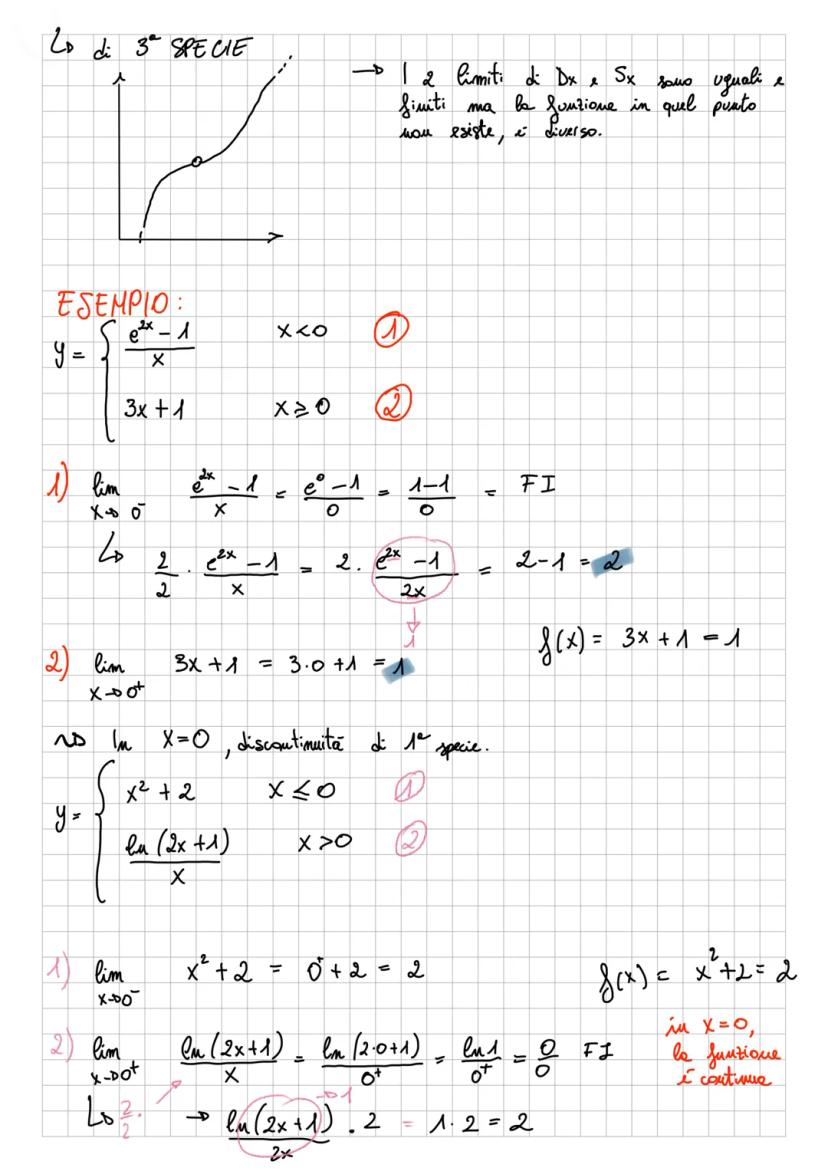 ↳ di 3ª SPECIE
→ I 2 limiti di Dx e Sx sono uguali e
finiti ma la funzione in quel punto
non esiste, è diverso.
ESEMPIO:
y = { (e^2x - 1)/x   x<0   ①
3x+1   x≥0   ②
1) lim x→0⁻ (e^2x - 1)/x = (e⁰-1)/0 = (1-1)/0 = FI
↳ 2/2 · (e^2x - 1)/x = 2 · (e^2x - 1)/2x = 2-1 = 2
↓
1
f(x) = 3x+1 = 1
2) lim x→0⁺ 3x+1 = 3·0+1 = 1
⇝ In X=0, discontinuità di 1ª specie.
y = { x²+2   x≤0   ①
ln(2x+1)/x   x>0   ②
1) lim x→0⁻ x²+2 = 0⁺+2 = 2   f(x) = x²+2 = 2
2) lim x→0⁺ ln(2x+1)/x = ln(2·0+1)/0⁺ = ln1/0⁺ = 0/0 FI
in x=0,
la funzione
è continua
↳ 2/2 · → ln(2x+1)/2x →1 · 2 = 1·2 = 2